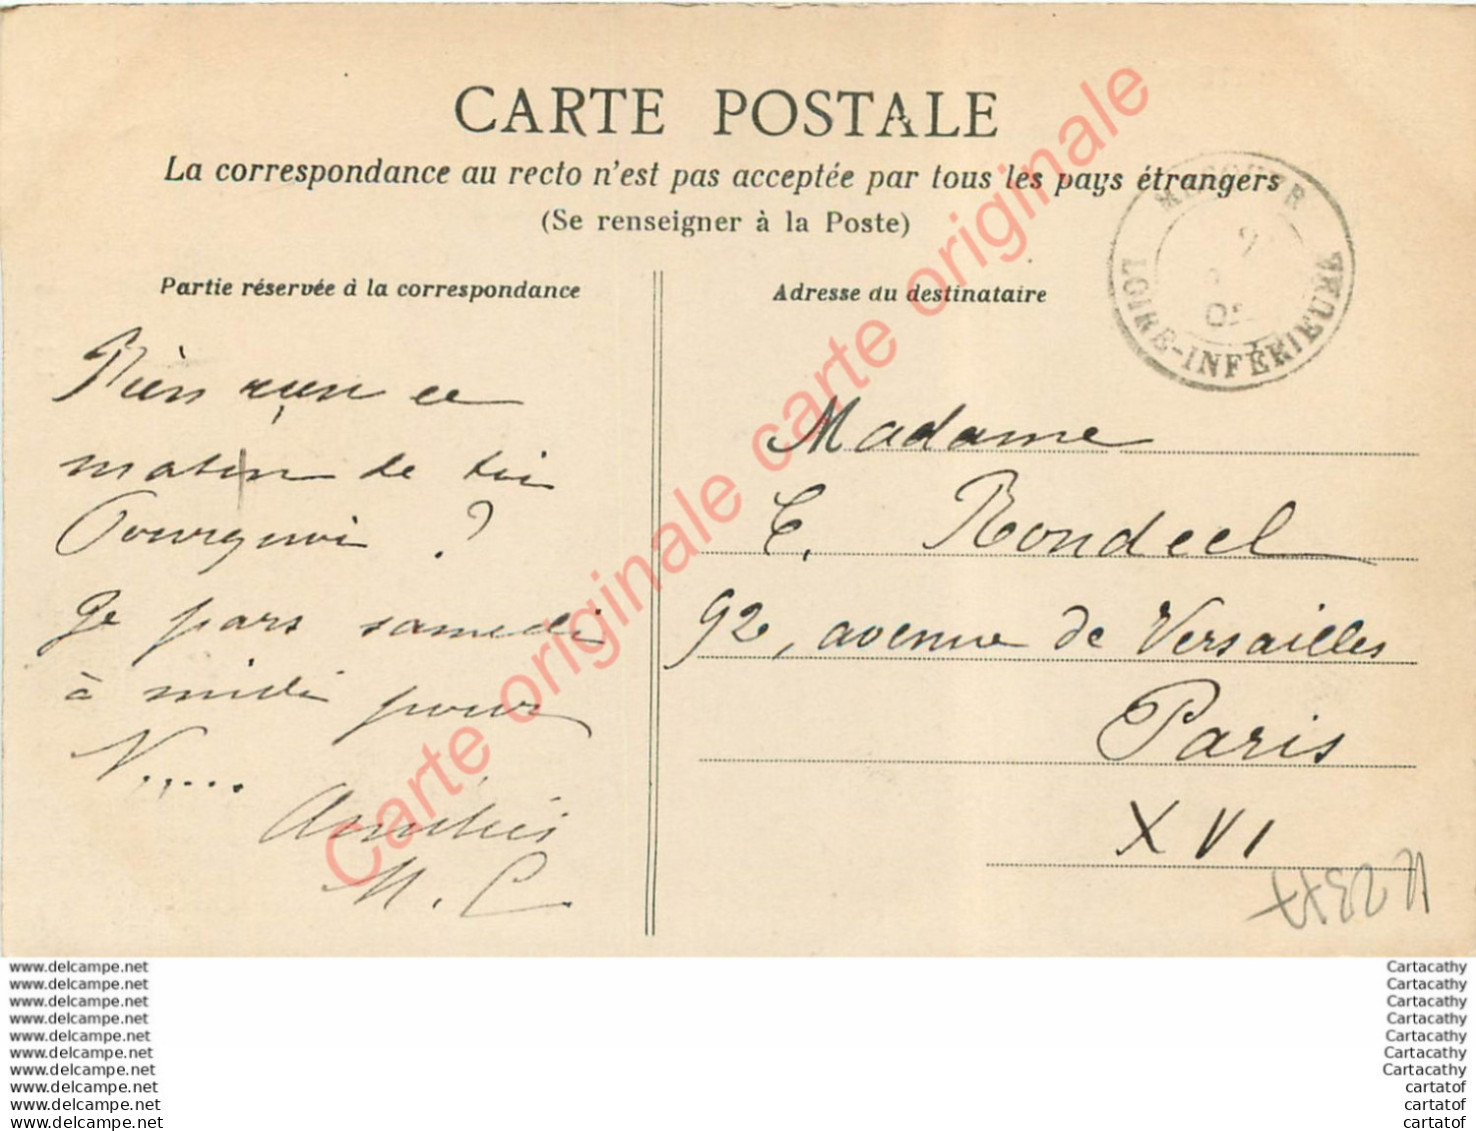 CARTE POSTALE
La correspondance au recto n'est pas acceptée par tous les pays étrangers
(Se renseigner à la Poste)
Partie réservée à la correspondance
Adresse du destinataire
LOIRE-INFÉRIEURE
Rien reçu ce
matin de toi
Pourquoi ?
Je pars samedi
à midi pour
V.....
Amitiés
M. C.
Madame
C. Rondeel
92, avenue de Versailles
Paris
XVI
Carte originale carte originale
www.delcampe.net
www.delcampe.net
www.delcampe.net
www.delcampe.net
www.delcampe.net
www.delcampe.net
www.delcampe.net
www.delcampe.net
www.delcampe.net
www.delcampe.net
Cartacathy
Cartacathy
Cartacathy
Cartacathy
Cartacathy
Cartacathy
Cartacathy
cartatof
cartatof
cartatof